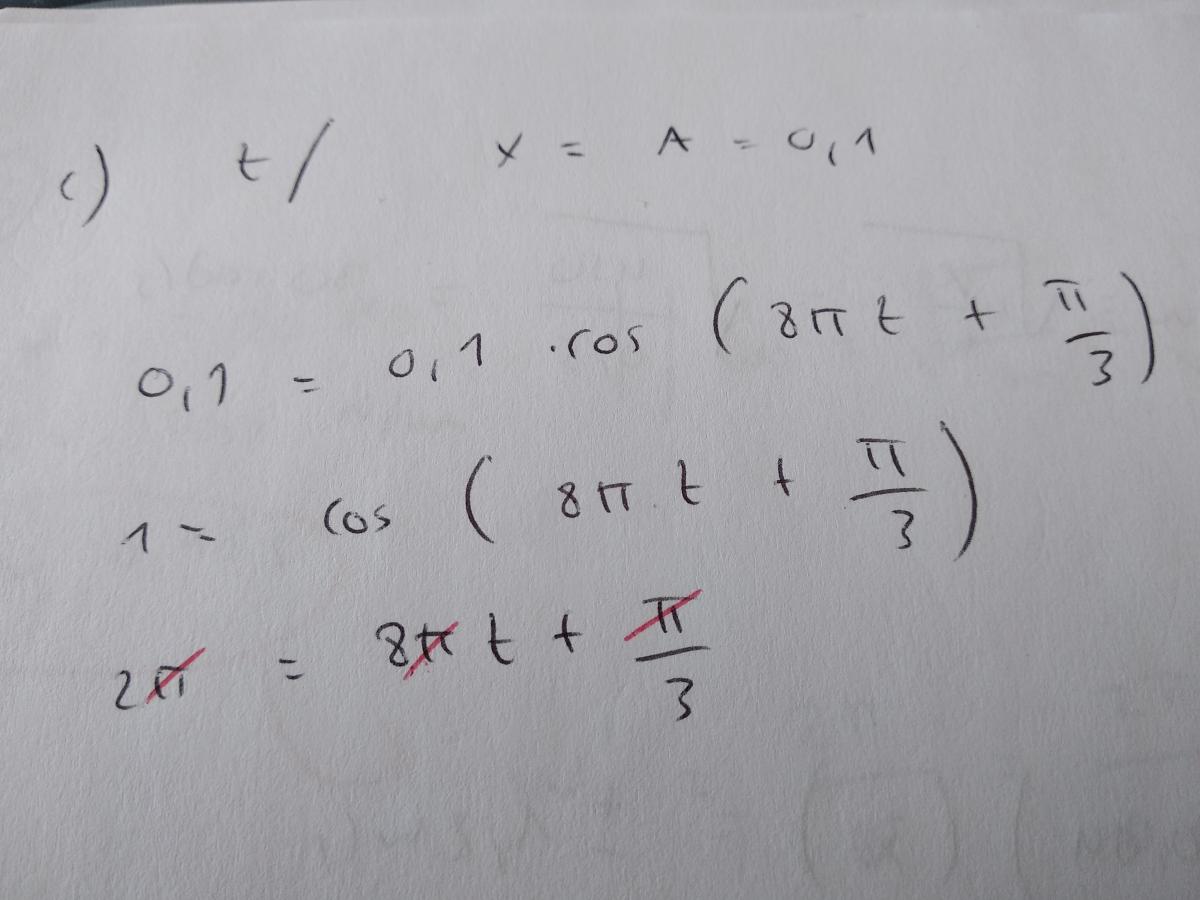 c) t/ x = A = 0,1
0,1 = 0,1 · cos (8π t + π/3)
1 = cos (8π t + π/3)
2π = 8π t + π/3